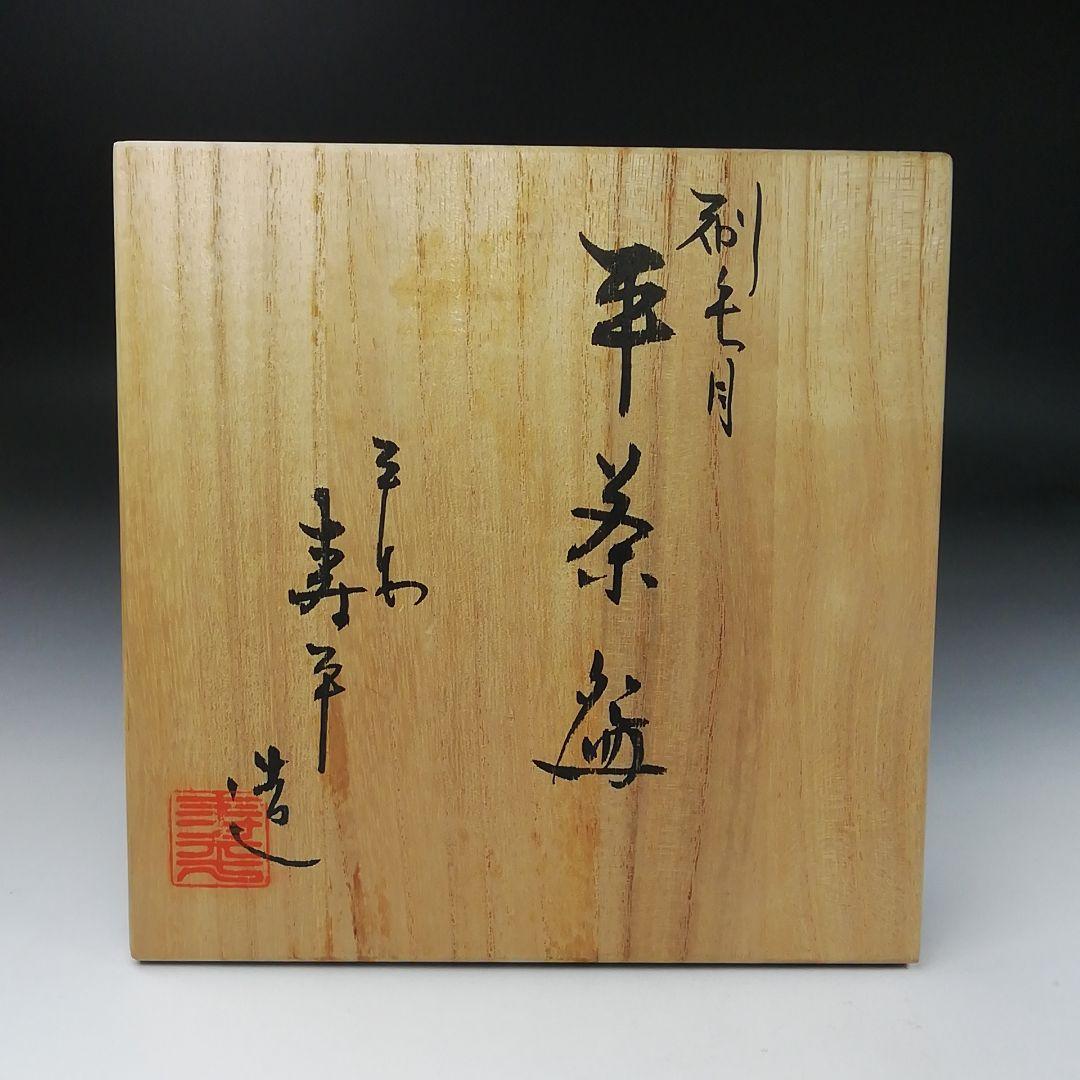 刷毛目
平茶盌
三州
寿平
造